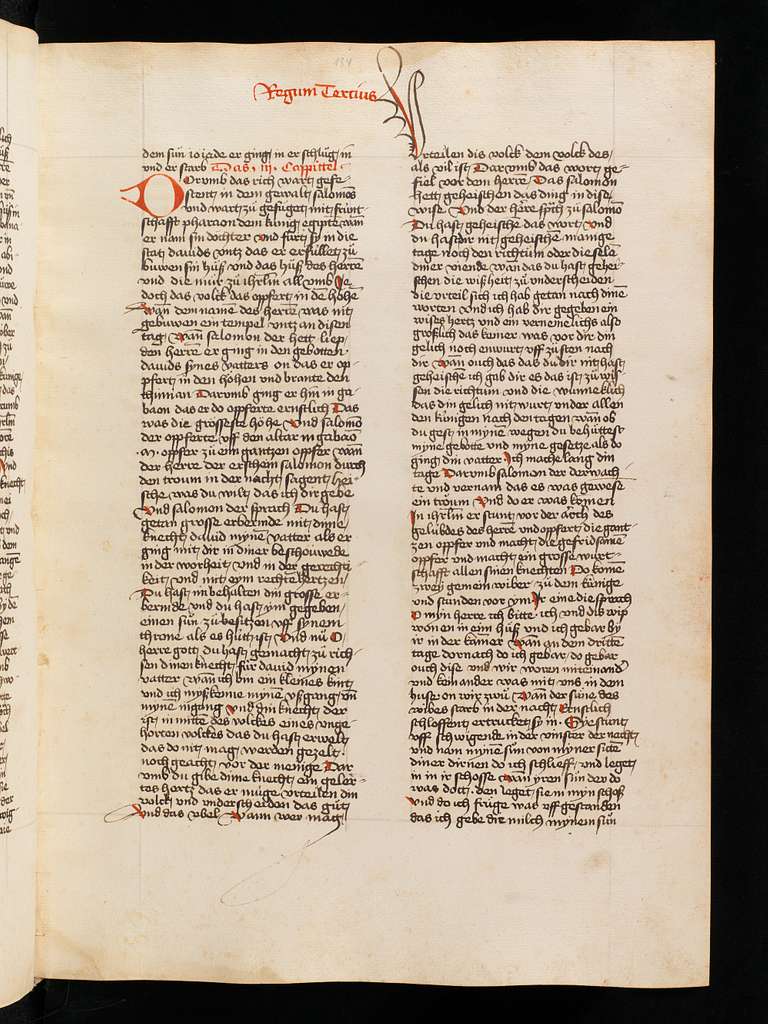 134
Regum Tercius
dem sün ioiade er ging in er schlüg in
vnd er starb Das .iij. Cappittel
Dorumb das rich wart gefe-
stent in dem gewalt salomos
vnd wart zü gefüget mit frünt-
schafft pharaon dem künig egipte wan
er nam sin dochter vnd fürt sy in die
stat dauids vntz das er erfüllet zü
buwen sin huß vnd das huß des herre
vnd die mür zü ihrlm all vmb Ie-
doch das volck das opffert in de höhe
wan dem name des herre was nit
gebuwen ein tempel vntz an disen
tag wan salomon der hett liep
den herre er ging in den gebotten
dauids synes vatters on das er op-
pfert in den höhen vnd brante den
thimian Darumb ging er hin in ga-
baon das er do opfferte ernstlich Das
was die grösseste höhe Vnd salomo
der opfferte vff den altar in gabao
.M. opffer zü ein gantzen opffer wan
der herre der erschein salomon durch
den troum in der nacht sagent hei-
sche was du wilt das ich dir gebe
Vnd salomon der sprach Du hast
getan grosse erbermde mit dine
knecht dauid myne vatter als er
ging mit dir in diner beschouwede
in der worheit vnd in der gerechti-
keit vnd mit eym rechte hertzen
Du hast im behalten din grosse er-
bermde vnd du hast ym gegeben
einen sün zü besitzen vff synem
throne als es hüt ist Vnd nü O
herre gott du hast gemacht zü rich-
sen dinen knecht für dauid mynen
vatter wan ich bin ein kleines kint
vnd ich mißkenne myne vßgang vn
myne ingang vnd din knecht der
ist in mitte des volckes eines vnge-
horten volckes das du hast erwelt
das do nit mag werden gezelt
noch geacht vor der menige Dar
vmb du gibe dine knecht ein geler-
tes hertz das er müge vrteilen din
volck vnd vnderscheiden das güt
Vnd das vbel Wann wer mag
vrteilen dis volck dem volck des
als vil ist Darumb das wort ge-
fiel vor dem herre Das salomon
hett geheischen das ding in dise
wise Vnd der herre sprach zü salomo
Du hast geheische das wort vnd
du hast dir nit geheische manige
tage noch den richtum oder die sele
diner viende wan das du hast gehei-
schen die wißheit zü vnderscheiden
die vrteil sich ich hab getan nach dine
worten vnd ich hab dir gegeben ein
wises hertz vnd ein vernemlichs also
größlich das keiner was vor dir din
gelich noch enwurt vff zü sten nach
dir Wan ouch das das du dir nit hast
geheische ich gib dir es das ist zü wis-
sen die richtum vnd die wunneklich
das din gelich nit wurt vnder allen
den künigen nach den tagen wan ob
du gest in mynen wegen du behüttest
myne gebotte vnd myne gesetze als do
ging din vatter Ich mache lang din
tage Darumb salomon der derwach-
te vnd vernam das es was gewese
ein troum Vnd do er was komen
In ihrlm er stunt vor der arch des
gelübdes des herre vnd opfert die gant-
zen opffer vnd macht die gefridsame
opffer vnd macht ein grosse wurt-
schafft allen sinen knechten Do kome
zwey gemein wiber zü dem künige
vnd stunden vor ym Ir eine die sprach
O myn herre ich bitte ich vnd dis wip
wonen in eim huß vnd ich gebar by
ir in der kamer Wan an dem dritte
tage dornach do ich gebar do gebar
ouch dise vnd wir woren mitenand
vnd kein ander was mit vns in dem
huse on wir zwü Wan der süne des
wibes starb in der nacht Ernstlich
schloffent ertrucket sy in Sye stunt
vff schwigende in der vinster der nacht
vnd nam myne sün von myner sitte
diner dirnen do ich schlieff vnd leget
in in ir schosse wan yren sün der do
was dott den leget sie in myn schoß
Vnd do ich früge was vff gestanden
das ich gebe die milch mynem sün